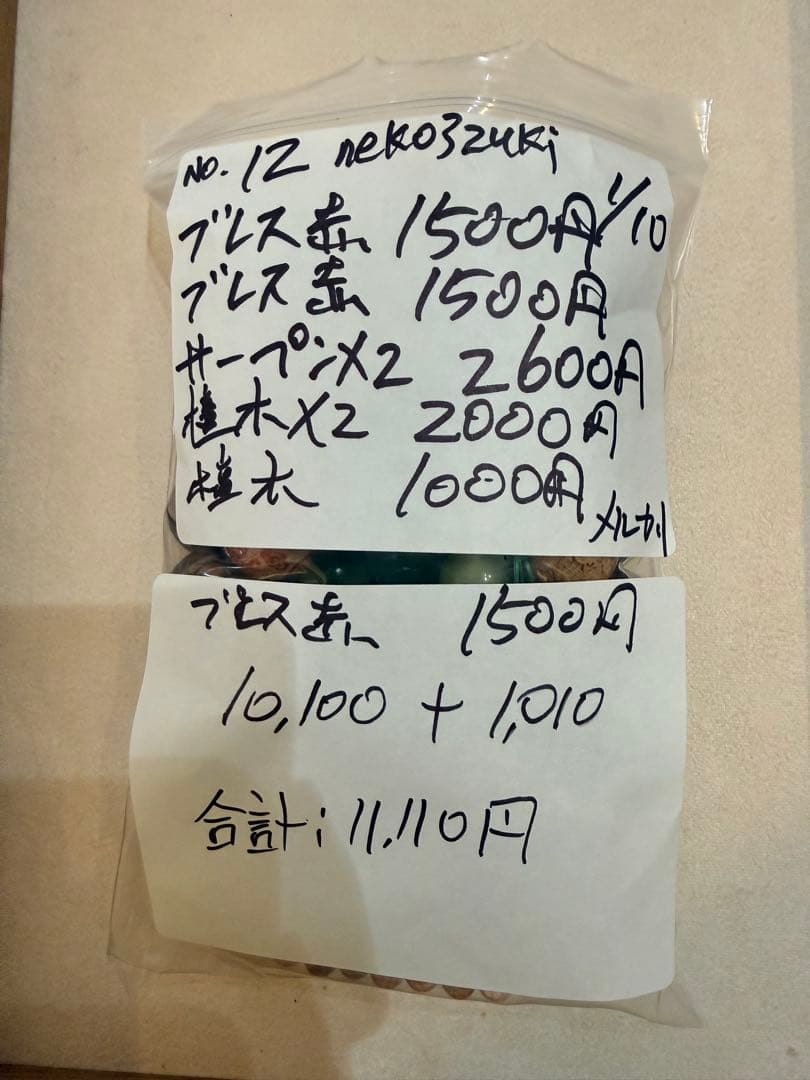 NO. 12 neko3zuki
ブレス赤 1500円 1/10
ブレス赤 1500円
サープンX2 2600円
植木X2 2000円
植木 1000円
メルカリ
ブレス赤 1500円
10,100 + 1,010
合計: 11,110円